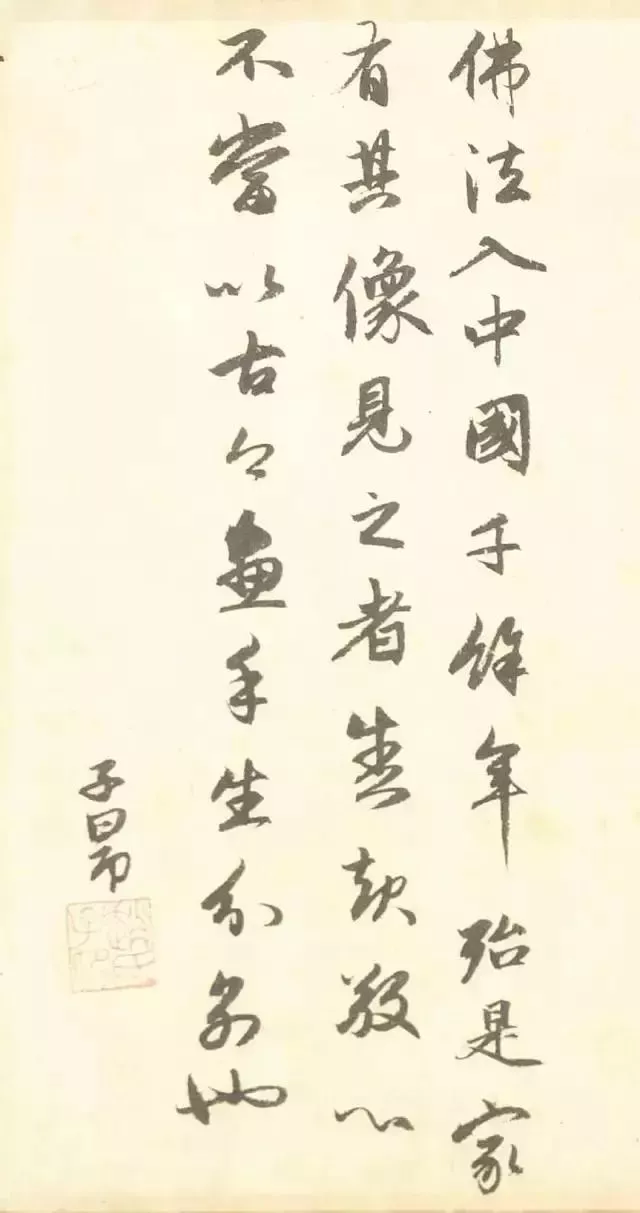 佛法入中國千餘年殆是家
有其像見之者盡起敬心
不當以古今畫手生分別也
子昂